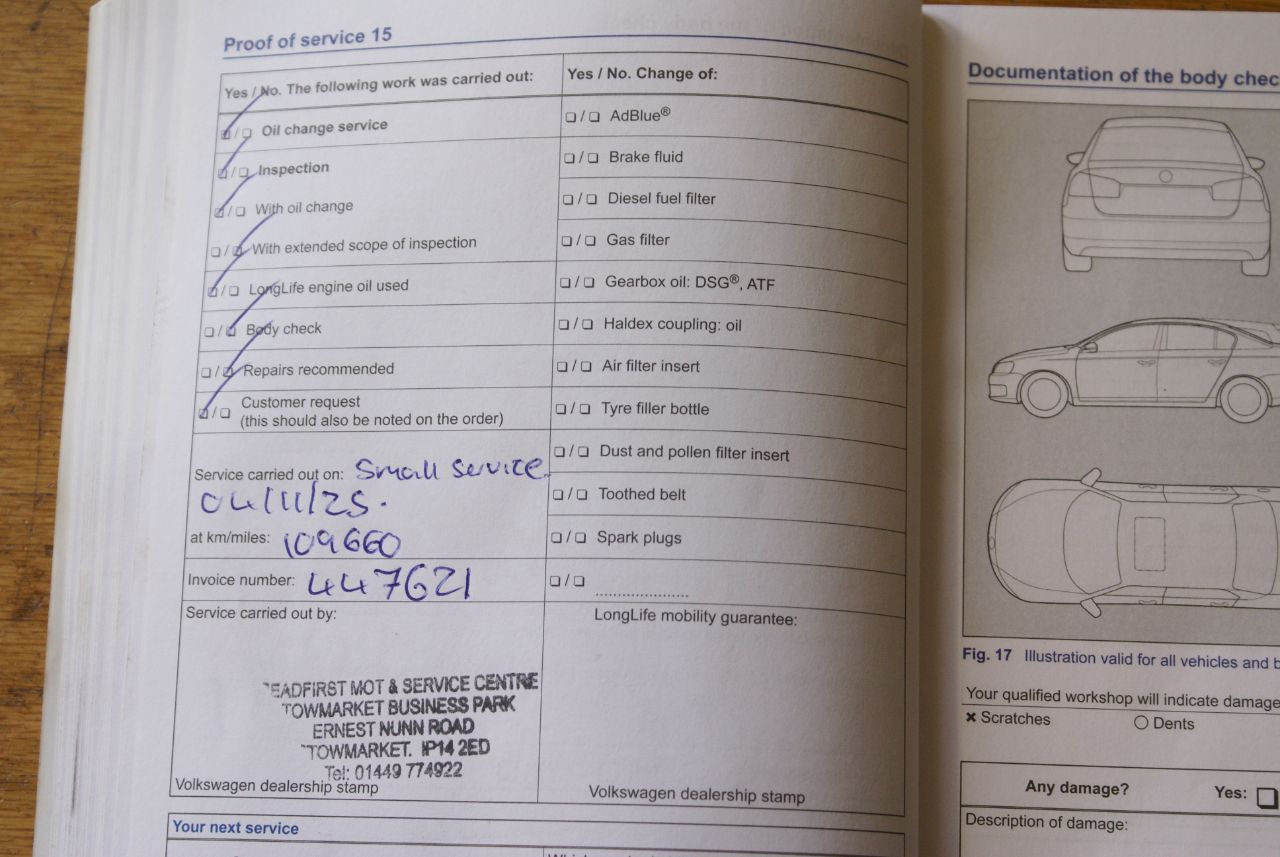 Proof of service 15
Yes / No. The following work was carried out:
Oil change service
Inspection
With oil change
With extended scope of inspection
LongLife engine oil used
Body check
Repairs recommended
Customer request
(this should also be noted on the order)
Service carried out on: Small Service
04/11/25.
at km/miles: 109660
Invoice number: 447621
Service carried out by:
EADFIRST MOT & SERVICE CENTRE
TOWMARKET BUSINESS PARK
ERNEST NUNN ROAD
TOWMARKET. IP14 2ED
Tel: 01449 774922
Volkswagen dealership stamp
Yes / No. Change of:
AdBlue®
Brake fluid
Diesel fuel filter
Gas filter
Gearbox oil: DSG®, ATF
Haldex coupling: oil
Air filter insert
Tyre filler bottle
Dust and pollen filter insert
Toothed belt
Spark plugs
LongLife mobility guarantee:
Volkswagen dealership stamp
Your next service
Documentation of the body chec
Fig. 17 Illustration valid for all vehicles and b
Your qualified workshop will indicate damage
Scratches
Dents
Any damage? Yes:
Description of damage: